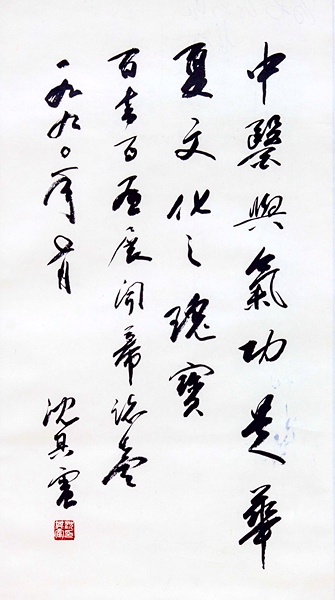 中醫與氣功是華
夏文化之瑰寶
百書百畫展開幕誌
一九九〇年月
沈其震